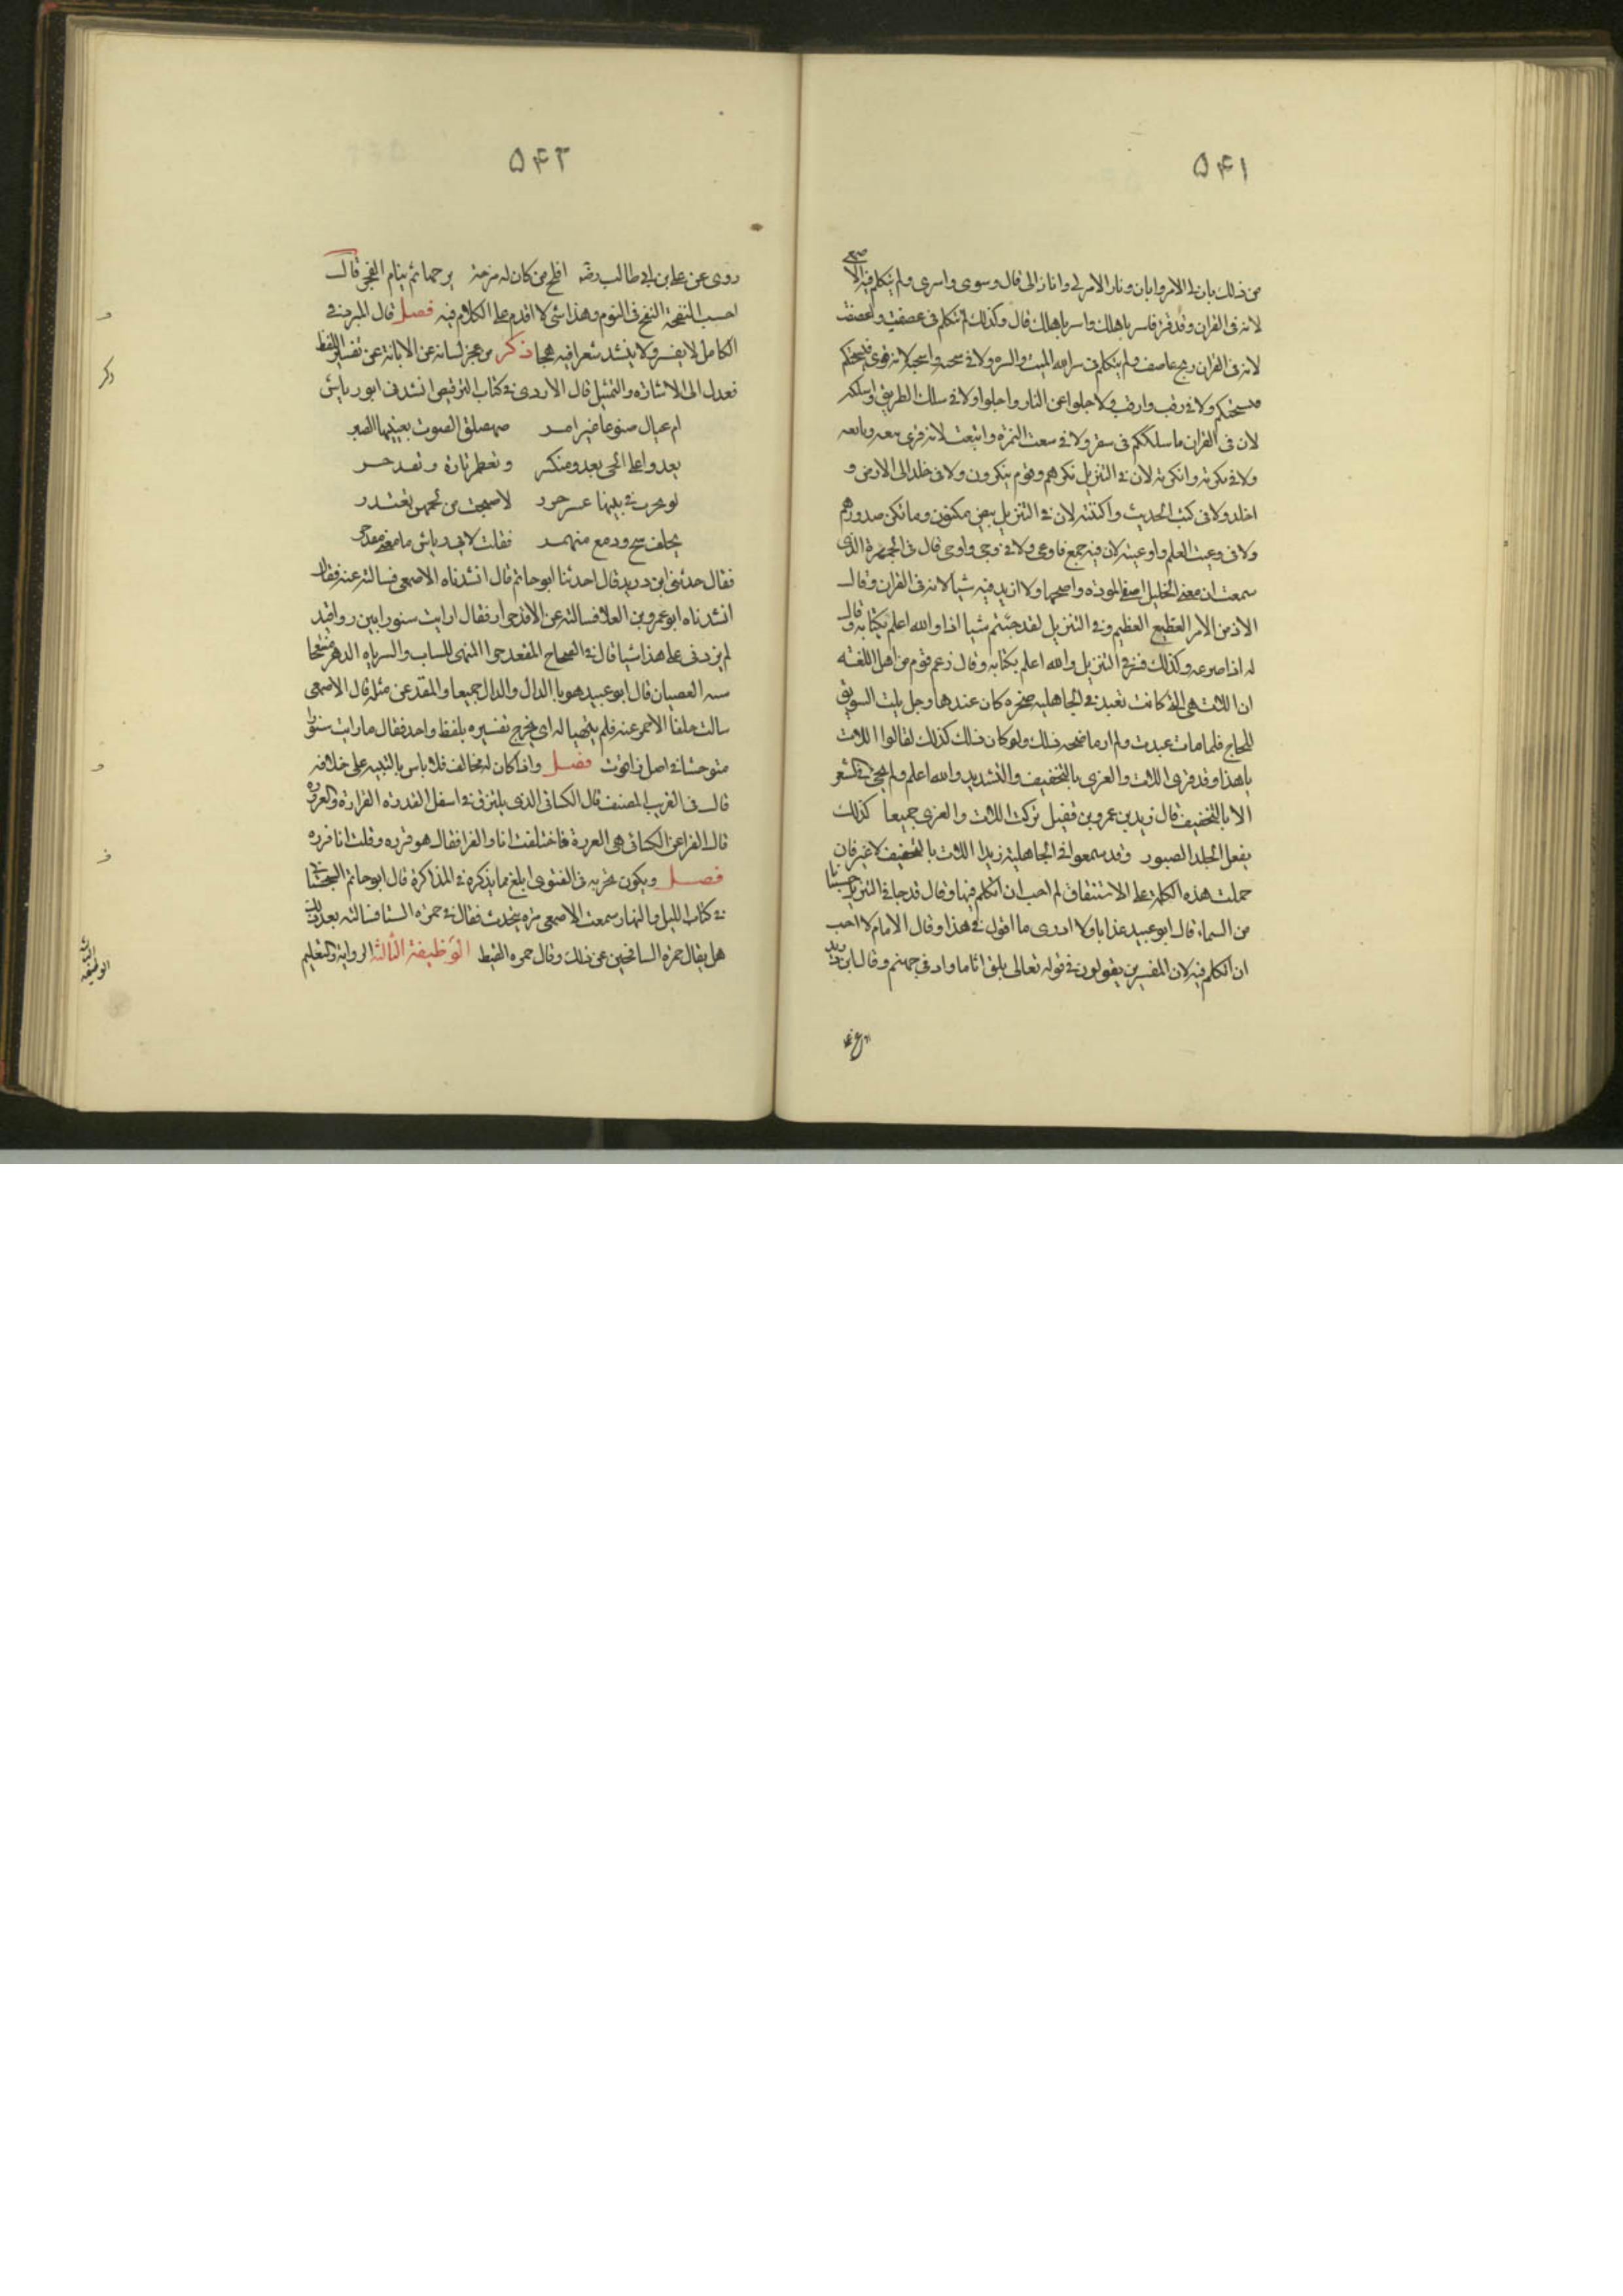 ۵۴۱
من ذلك بان لى الامر وابان ونار الامر لى وانار الى قال وسرى واسرى ولم يتكلم فيه الا
لانه فى القران وقد قرئ فاسر باهلك واسر باهلك قال وكذلك لم يتكلم فى عصفت واعصفت
لانه فى القران ريح عاصف ولم يتكلم فى ولا فى سحته واسحته لانه قرئ فيسحتكم
فيسحتكم ولا فى رقب وارقب ولا جلوا عن الدار واجلوا ولا فى سلك الطريق واسلكه
لان فى القران ما سلككم فى سقر ولا فى ينعت الثمرة واينعت لانه قرئ ينعه ويانعه
ولا فى نكرته وانكرته لان فى التنزيل نكرهم وقوم ينكرون ولا فى خلد الى الارض و
اخلد ولا فى كننت الحديث واكننته لان فى التنزيل بيض مكنون وما تكن صدورهم
ولا فى وعيت العلم واوعيته لان فيه جمع فاوعى ولا فى وحى واوحى قال فى الجمهرة الذى
سمعت ان معنى الخليل اصفى المودة واصحها ولا ازيد فيه شيا لانه فى القران وقال
الاد من الامر الفظيع العظيم وفى التنزيل لقد جئتم شيا ادا والله اعلم بكتابه وقال
له اذا صرعه وكذلك فسر فى التنزيل والله اعلم بكتابه وقال زعم قوم من اهل اللغة
ان اللات هى التى كانت تعبد فى الجاهلية صخرة كان عندها رجل يلت السويق
للحاج فلما مات عبدت ولم ار ما صحة ذلك ولو كان ذلك كذلك لقالوا اللات
يا هذا وقد قرئ اللات والعزى بالتخفيف والتشديد والله اعلم ولم يجئ فى الشعر
الا بالتخفيف قال زيد بن عمرو بن نفيل تركت اللات والعزى جميعا كذلك
يفعل الجلد الصبور وقد سموا فى الجاهلية زيد اللات بالتخفيف لا غير فان
حملت هذه الكلمة على الاشتقاق لم احب ان اتكلم فيها وقال قد جا فى التنزيل حسبانا
من السماء قال ابو عبيد عذابا ولا ادرى ما اقول فى هذا وقال الامام لا احب
ان اتكلم فيه لان المفسرين يقولون فى قوله تعالى يلق اثاما واد فى جهنم وقال ابن دريد
۵۴۲
روى عن على بن ابى طالب رضه افلح من كان له مزخة يزخها ثم ينام الفخه قال
احسب الفخة النفخ فى النوم وهذا شى لا اقدم على الكلام فيه فصل قال المبرد فى
الكامل لا يفسر ولا ينشد شعرا فيه هجا ذكر من عجز لسانه عن الابانة عن تفسير اللفظ
فعدل الى الاشارة والتمثيل قال الازدى فى كتاب الترقيص انشدنى ابو رياش
ام عيال صهصلق الصوت بعينيها الصبر
تغدو على الحى بعود منكسر
لو نحرت فى بيتها عشر جزر لاصبحت من لحمهن تعتذر
بحلف سح ودمع منهمر فقلت لابى رياش ما معنى
فقال حدثنى ابن دريد قال حدثنا ابو حاتم قال انشدناه الاصمعى فسالته عنه فقال
انشدناه ابو عمرو بن العلا فسالته عن الاقدحرار فقال ارايت سنورا بين رواقيد
لم يزدنى على هذا شيا قال فى الصحاح المقدحر المتهى للسباب والشر تراه الدهر منتفخا
شبه الغضبان قال ابو عبيد هو بالدال والذال جميعا والمقذعر مثله قال الاصمعى
سالت خلفا الاحمر عنه فلم يتهيا له ان يخرج تفسيره بلفظ واحد فقال ما رايت سنورا
متوحشا فى اصل راقود فصل واذا كان له مخالف فلا باس بالتنبيه على خلافه
قال فى الغريب المصنف قال الكسائى الذى يلتزق فى اسفل القدر القرارة والقررة
قال الفرا عن الكسائى هى القررة فاختلفت انا والفرا فقال هو قررة وقلت انا قررة
فصل ويكون تحريه فى الفتوى ابلغ مما يذكره فى المذاكرة قال ابو حاتم السجستانى
فى كتاب الليل والنهار سمعت الاصمعى مرة يتحدث فقال فى حمرة الشتا فسالته بعد ذلك
هل يقال حمرة الشتا فجبن عن ذلك وقال حمرة القيظ الوظيفة الثالثة الرواية والتعليم
ذكر
الوظيفة
الثالثة